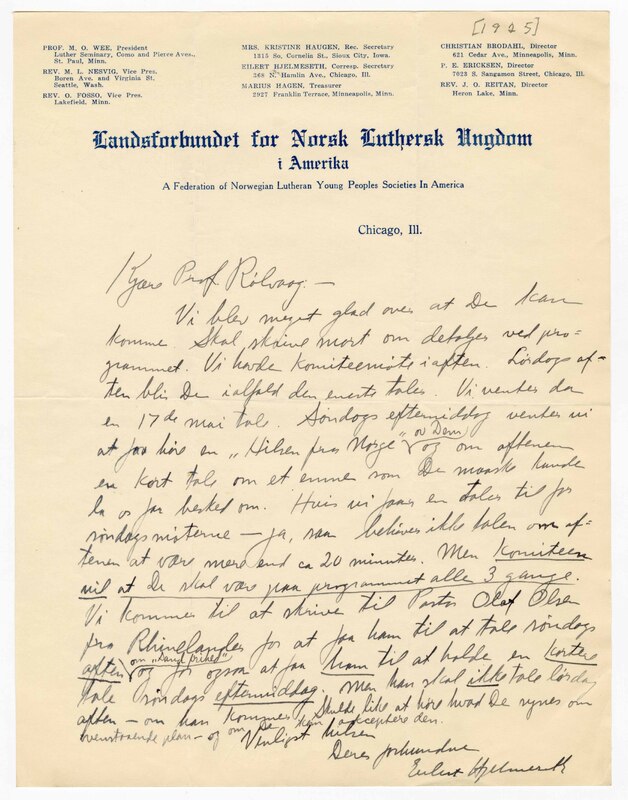 [1925]
PROF. M. O. WEE, President
Luther Seminary, Como and Pierce Aves.,
St. Paul, Minn.
REV. M. L. NESVIG, Vice Pres.
Boren Ave. and Virginia St.
Seattle, Wash.
REV. O. FOSSO, Vice Pres.
Lakefield, Minn.
MRS. KRISTINE HAUGEN, Rec. Secretary
1315 So. Cornelia St., Sioux City, Iowa.
EILERT HJELMESETH, Corresp. Secretary
268 N. Hamlin Ave., Chicago, Ill.
MARIUS HAGEN, Treasurer
2927 Franklin Terrace, Minneapolis, Minn.
CHRISTIAN BRODAHL, Director
621 Cedar Ave., Minneapolis, Minn.
P. E. ERICKSEN, Director
7023 S. Sangamon Street, Chicago, Ill.
REV. J. O. REITAN, Director
Heron Lake, Minn.
Landsforbundet for Norsk Luthersk Ungdom
i Amerika
A Federation of Norwegian Lutheran Young Peoples Societies In America
Chicago, Ill.
Kjære Prof. Rölvaag:—
Vi blev meget glad over at De kan
komme. Skal skrive mort om detaljer ved pro-
grammet. Vi havde komitemöte iaften. Lördags af-
ten blir De ialfald den eneste taler. Vi venter da
en 17de mai tale. Söndags eftermiddag venter vi
at faa höre en „Hilsen fra Norge" av Dem og om aftenen
en kort tale om et emne som De maaske kunde
la os faa besked om. Hvis vi faar en taler til for
söndagsmöterne — ja, saa behöves ikke talen om af-
tenen at være mere end ca 20 minutes. Men Komiteen
vil at De skal være paa programmet alle 3 gange.
Vi kommer til at skrive til Pastor Olaf Olsen
fra Rhinelander for at faa ham til at tale söndags
aften om og for ogsaa at faa ham til at holde en kortere
tale söndags eftermiddag. Men han skal ikke tale lördag
aften — om han kommer. Skulde like at höre hvad De synes om
ovenstaaende plan — og om De kan akceptere den.
Venligst hilsen
Deres forbundne
Eilert Hjelmeseth